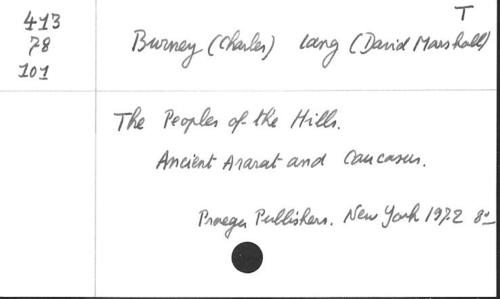 T
413
78
101
Burney (Charles) Lang (David Marshall)
The Peoples of the Hills.
Ancient Ararat and Caucasus.
Praeger Publishers. New York 1972 8º